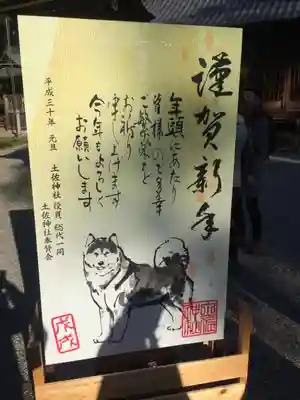 謹賀新年
年頭にあたり
皆様のご多幸
ご繁栄を
お祈り
申し上げます
今年もよろしく
お願いします
平成三十年 元旦
土佐神社 役員 総代一同
土佐神社奉賛会
戊戌
土佐神社